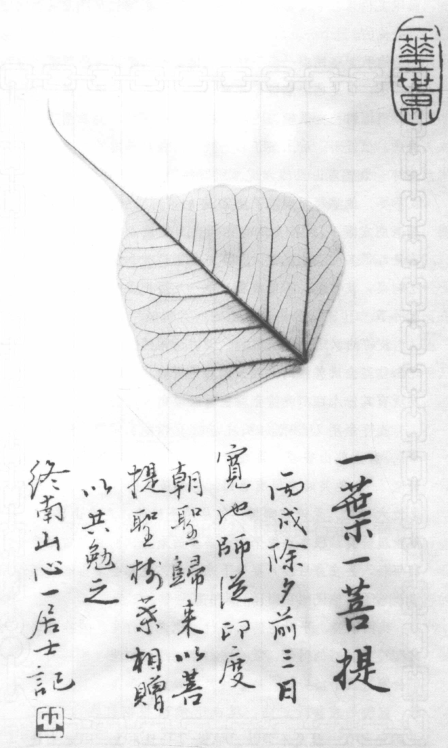 一華世界
一葉菩提
丙戌除夕前三日
寬池師從印度
朝聖歸來以菩
提聖樹葉相贈
以共勉之
終南山心一居士記